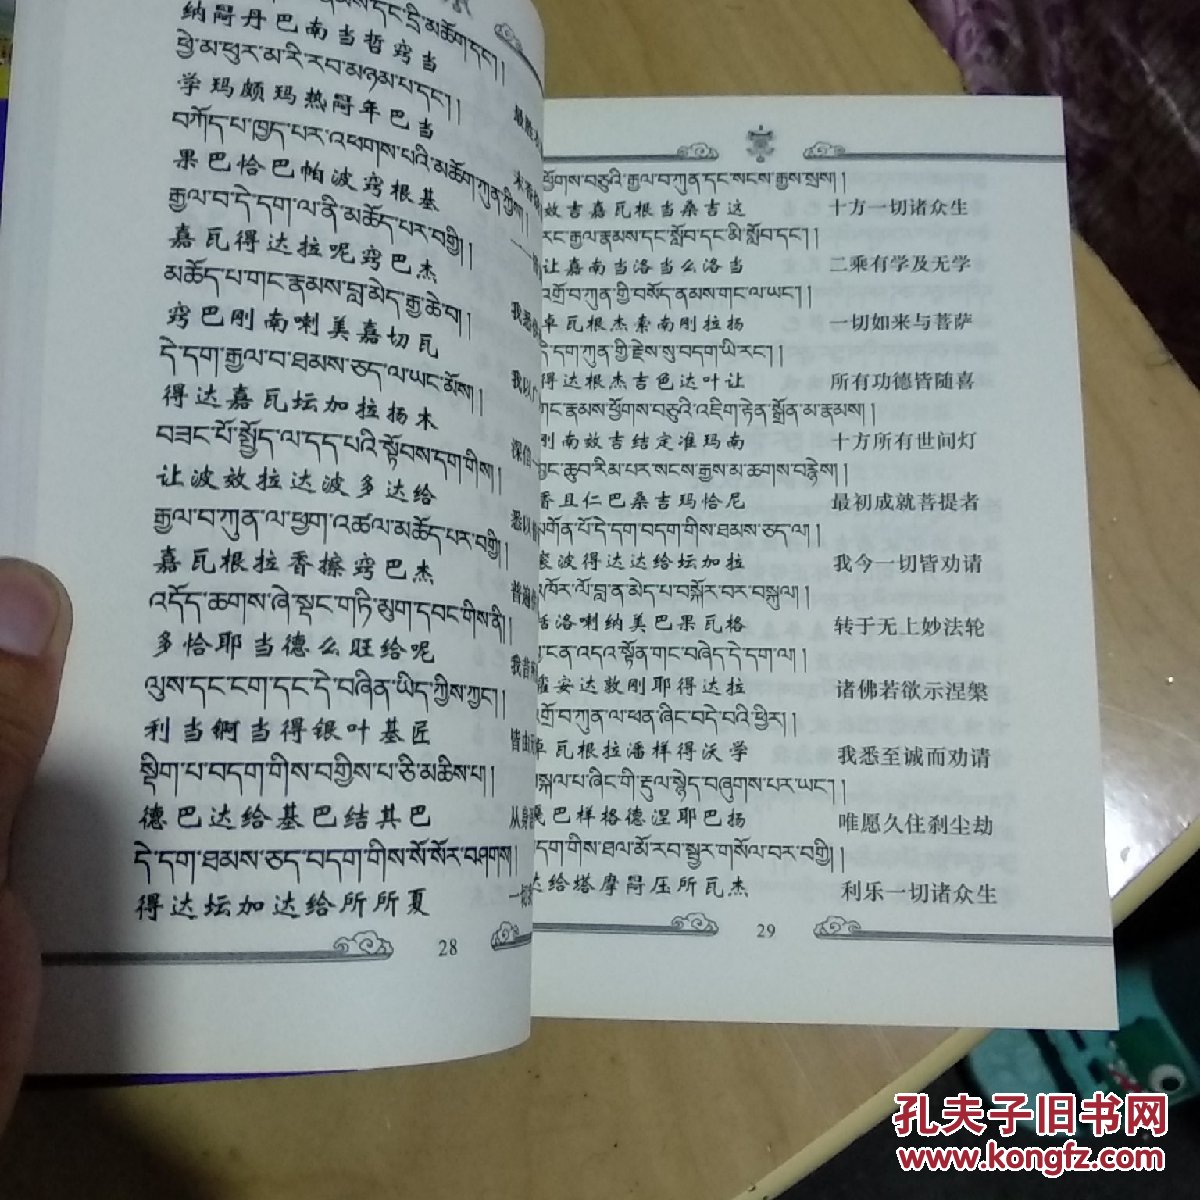 纳啊丹巴南当哲窍当
ཕྱེ་མ་ཕུར་མ་རི་རབ་མཉམ་པ་དང་། །
学玛颇玛热啊年巴当
བཀོད་པ་ཁྱད་པར་འཕགས་པའི་མཆོག་ཀུན་གྱིས། །
果巴恰巴帕波窍根基
རྒྱལ་བ་དེ་དག་ལ་ནི་མཆོད་པར་བགྱི། །
嘉瓦得达拉呢窍巴杰
མཆོད་པ་གང་རྣམས་བླ་མེད་རྒྱ་ཆེ་བ། །
窍巴刚南喇美嘉切瓦
དེ་དག་རྒྱལ་བ་ཐམས་ཅད་ལ་ཡང་མོས། །
得达嘉瓦坛加拉扬木
བཟང་པོ་སྤྱོད་ལ་དད་པའི་སྟོབས་དག་གིས། །
让波效拉达波多达给
རྒྱལ་བ་ཀུན་ལ་ཕྱག་འཚལ་མཆོད་པར་བགྱི། །
嘉瓦根拉香擦窍巴杰
འདོད་ཆགས་ཞེ་སྡང་གཏི་མུག་དབང་གིས་ནི། །
多恰耶当德么旺给呢
ལུས་དང་ངག་དང་དེ་བཞིན་ཡིད་ཀྱིས་ཀྱང་། །
利当锕当得银叶基匠
སྡིག་པ་བདག་གིས་བགྱིས་པ་ཅི་མཆིས་པ། །
德巴达给基巴结其巴
དེ་དག་ཐམས་ཅད་བདག་གིས་སོ་སོར་བཤགས། །
得达坛加达给所所夏
28
ཕྱོགས་བཅུའི་རྒྱལ་བ་ཀུན་དང་སངས་རྒྱས་སྲས། །
效吉嘉瓦根当桑吉这 十方一切诸众生
རང་རྒྱལ་རྣམས་དང་སློབ་དང་མི་སློབ་དང་། །
让嘉南当洛当么洛当 二乘有学及无学
འགྲོ་བ་ཀུན་གྱི་བསོད་ནམས་གང་ལ་ཡང་། །
卓瓦根杰索南刚拉扬 一切如来与菩萨
དེ་དག་ཀུན་གྱི་རྗེས་སུ་བདག་ཡི་རང་། །
得达根杰吉色达叶让 所有功德皆随喜
གང་རྣམས་ཕྱོགས་བཅུའི་འཇིག་རྟེན་སྒྲོན་མ་རྣམས། །
刚南效吉结定准玛南 十方所有世间灯
བྱང་ཆུབ་རིམ་པར་སངས་རྒྱས་མ་ཆགས་བརྙེས། །
香且仁巴桑吉玛恰尼 最初成就菩提者
མགོན་པོ་དེ་དག་བདག་གིས་ཐམས་ཅད་ལ། །
波得达达给坛加拉 我今一切皆劝请
འཁོར་ལོ་བླ་ན་མེད་པ་བསྐོར་བར་བསྐུལ། །
洛喇纳美巴果瓦格 转于无上妙法轮
ངན་འདའ་སྟོན་གང་བཞེད་དེ་དག་ལ། །
安达敦刚耶得达拉 诸佛若欲示涅槃
འགྲོ་བ་ཀུན་ལ་ཕན་ཞིང་བདེ་བའི་ཕྱིར། །
卓瓦根拉潘样得沃学 我悉至诚而劝请
བསྐལ་པ་ཞིང་གི་རྡུལ་སྙེད་བཞུགས་པར་ཡང་། །
嘎巴样格德涅耶巴扬 唯愿久住刹尘劫
བདག་གིས་ཐལ་མོ་རབ་སྦྱར་གསོལ་བར་བགྱི། །
达给塔摩啊压所瓦杰 利乐一切诸众生
29
孔夫子旧书网
www.kongfz.com